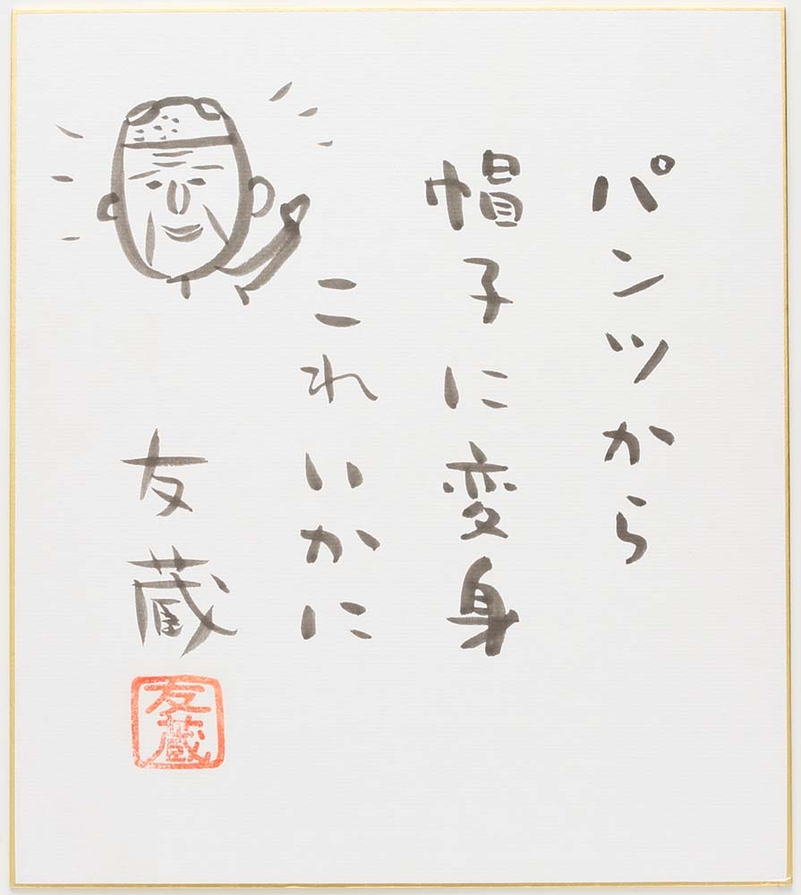 パンツから
帽子に変身
これいかに
友蔵
友蔵